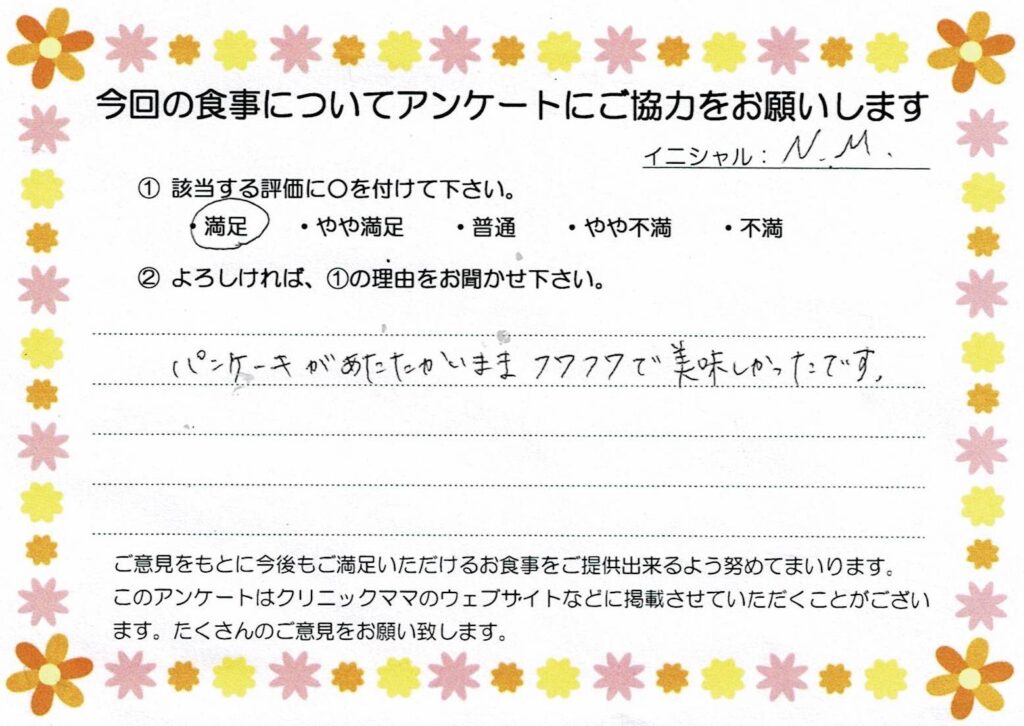 今回の食事についてアンケートにご協力をお願いします
イニシャル： N.M.
① 該当する評価に〇を付けて下さい。
・満足 ・やや満足 ・普通 ・やや不満 ・不満
② よろしければ、①の理由をお聞かせ下さい。
パンケーキがあたたかいままフワフワで美味しかったです。
ご意見をもとに今後もご満足いただけるお食事をご提供出来るよう努めてまいります。
このアンケートはクリニックママのウェブサイトなどに掲載させていただくことがござい
ます。たくさんのご意見をお願い致します。